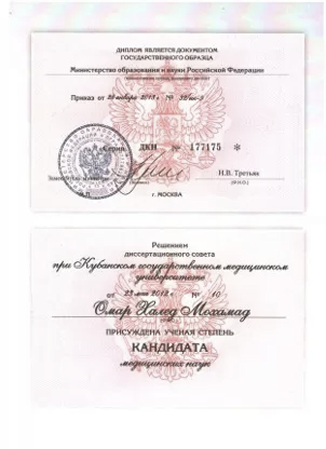 ДИПЛОМ ЯВЛЯЕТСЯ ДОКУМЕНТОМ
ГОСУДАРСТВЕННОГО ОБРАЗЦА
Министерство образования и науки Российской Федерации
Приказ от 28 января 2013 г. №
Серия ДКН № 177175 *
Н.В. Третьяк
(Ф.И.О.)
М.П.
г. МОСКВА
Решением
диссертационного совета
при Кубанском государственном медицинском
университете
от 23 мая 2012 г. № 10
Омар Халед Мохамад
ПРИСУЖДЕНА УЧЕНАЯ СТЕПЕНЬ
КАНДИДАТА
медицинских наук